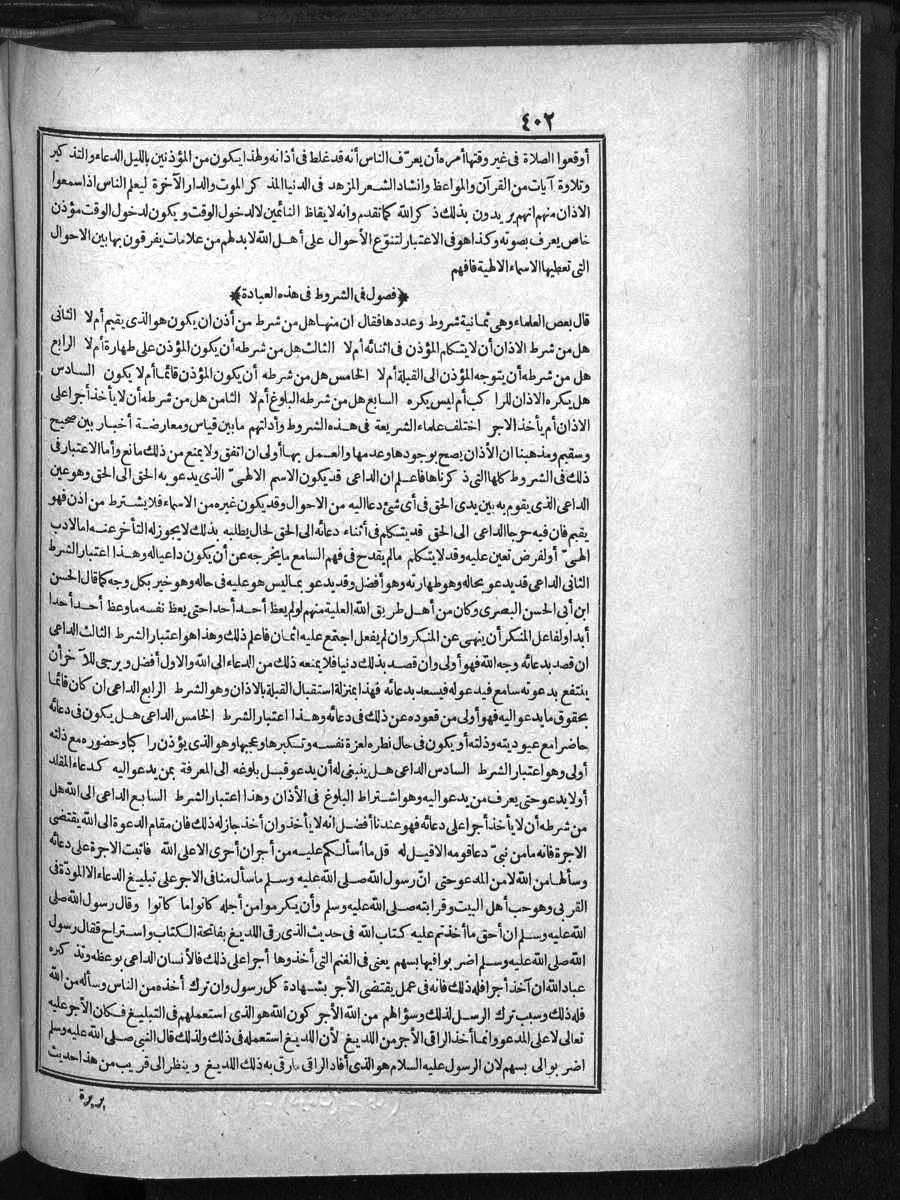 ٤٠٢
أوقعوا الصلاة في غير وقتها أمره أن يعرّف الناس أنه قد غلط في أذانه ولهذا يكون من المؤذنين بالليل الدعاء والتذكير
وتلاوة آيات من القرآن والمواعظ وانشاد الشعر المزهد في الدنيا المذكر الموت والدار الآخرة ليعلم الناس اذا سمعوا
الاذان منهم انهم يريدون بذلك ذكر الله كما تقدم وانه لايقاظ النائمين لا لدخول الوقت ويكون لدخول الوقت مؤذن
خاص يعرف بصوته وكذا هو في الاعتبار لتنوّع الأحوال على أهل الله لا بد لهم من علامات يفرقون بها بين الاحوال
التي تعطيها الاسماء الالهية فافهم
﴿فصول في الشروط في هذه العبادة﴾
قال بعض العلماء وهي ثمانية شروط وعددها فقال ان منها هل من شرط من أذن ان يكون هو الذي يقيم أم لا الثاني
هل من شرط الاذان أن لا يتكلم المؤذن في اثنائه أم لا الثالث هل من شرطه أن يكون المؤذن على طهارة أم لا الرابع
هل من شرطه أن يتوجه المؤذن الى القبلة أم لا الخامس هل من شرطه أن يكون المؤذن قائما أم لا يكون السادس
هل يكره الاذان للراكب أم ليس يكره السابع هل من شرطه البلوغ أم لا الثامن هل من شرطه أن لا يأخذ أجرا على
الاذان أم يأخذ الاجر اختلف علماء الشريعة في هذه الشروط وأدلتهم ما بين قياس ومعارضة أخبار بين صحيح
وسقيم ومذهبنا ان الأذان يصح بوجودها وعدمها والعمل بها أولى ان اتفق ولا يمنع من ذلك مانع وأما الاعتبار في
ذلك في الشروط كلها التي ذكرناها فاعلم ان الداعي قد يكون الاسم الالهيّ الذي يدعو به الحق الى الحق وهو عين
الداعي الذي يقوم به بين يدي الحق في أي شئ دعا اليه من الاحوال وقد يكون غيره من الاسماء فلا يشترط من اذن فهو
يقيم فان فيه حرجا الداعي الى الحق قد يتكلم في أثناء دعائه الى الحق لحال يطلبه بذلك لا يجوز له التأخر عنه اما لادب
الهيّ أو لفرض تعين عليه وقد لا يتكلم ما لم يقدح في فهم السامع ما يخرجه عن أن يكون داعيا له وهذا اعتبار الشرط
الثاني الداعي قد يدعو بحاله وهو طهارته وهو أفضل وقد يدعو بما ليس هو عليه في حاله وهو خير بكل وجه كما قال الحسن
ابن أبي الحسن البصري وكان من أهل طريق الله العلية منهم لو لم يعظ أحد أحدا حتى يعظ نفسه ما وعظ أحد أحدا
أبدا ولفاعل المنكر أن ينهى عن المنكر وان لم يفعل اجتمع عليه اثمان فاعلم ذلك وهذا هو اعتبار الشرط الثالث الداعي
ان قصد بدعائه وجه الله فهو أولى وان قصد بذلك دنيا فلا يمنعه ذلك من الدعاء الى الله والاول أفضل ويرجى للآخر أن
ينتفع بدعوته سامع فيدعو له فيسعد بدعائه فهذا بمنزلة استقبال القبلة بالاذان وهو الشرط الرابع الداعي ان كان قائما
بحقوق ما يدعو اليه فهو أولى من قعوده عن ذلك في دعائه وهذا اعتبار الشرط الخامس الداعي هل يكون في دعائه
حاضرا مع عبوديته وذلته أو يكون في حال نظره لعزة نفسه وتكبرها وعجبها وهو الذي يؤذن راكبا وحضوره مع ذلته
أولى وهو اعتبار الشرط السادس الداعي هل ينبغي له أن يدعو قبل بلوغه الى المعرفة بمن يدعو اليه كدعاء المقلد
أو لا يدعو حتى يعرف من يدعو اليه وهو اشتراط البلوغ في الأذان وهذا اعتبار الشرط السابع الداعي الى الله هل
من شرطه أن لا يأخذ أجرا على دعائه فهو عندنا أفضل انه لا يأخذ وان أخذ جاز له ذلك فان مقام الدعوة الى الله يقتضى
الاجرة فانه ما من نبيّ دعا قومه الا قيل له قل ما أسألكم عليه من أجر ان أجرى الا على الله فاثبت الاجرة على دعائه
وسألها من الله لا من المدعو حتى انّ رسول الله صلى الله عليه وسلم ما سأل منا في الاجر على تبليغ الدعاء الا المودّة في
القربى وهو حب أهل البيت وقرابته صلى الله عليه وسلم وأن يكرموا من أجله كانوا ما كانوا وقال رسول الله صلى
الله عليه وسلم ان أحق ما أخذتم عليه كتاب الله في حديث الذي رقى اللديغ بفاتحة الكتاب واستراح فقال رسول
الله صلى الله عليه وسلم اضربوا فيها بسهم يعنى في الغنم التي أخذوها أجرا على ذلك فالأنسان الداعي بوعظه وتذكيره
عباد الله ان أخذ أجرا فله ذلك فانه في عمل يقتضى الأجر بشهادة كل رسول وان ترك أخذه من الناس وسأله من الله
فله ذلك وسبب ترك الرسل لذلك وسؤالهم من الله الأجر كون الله هو الذي استعملهم في التبليغ فكان الأجر عليه
تعالى لا على المدعو وانما أخذ الراقي الأجر من اللديغ لأن اللديغ استعمله في ذلك ولذلك قال النبي صلى الله عليه وسلم
اضربوا لي بسهم لان الرسول عليه السلام هو الذي أفاد الراقي ما رقى به ذلك اللديغ وينظر الى قريب من هذا حديث
بريرة